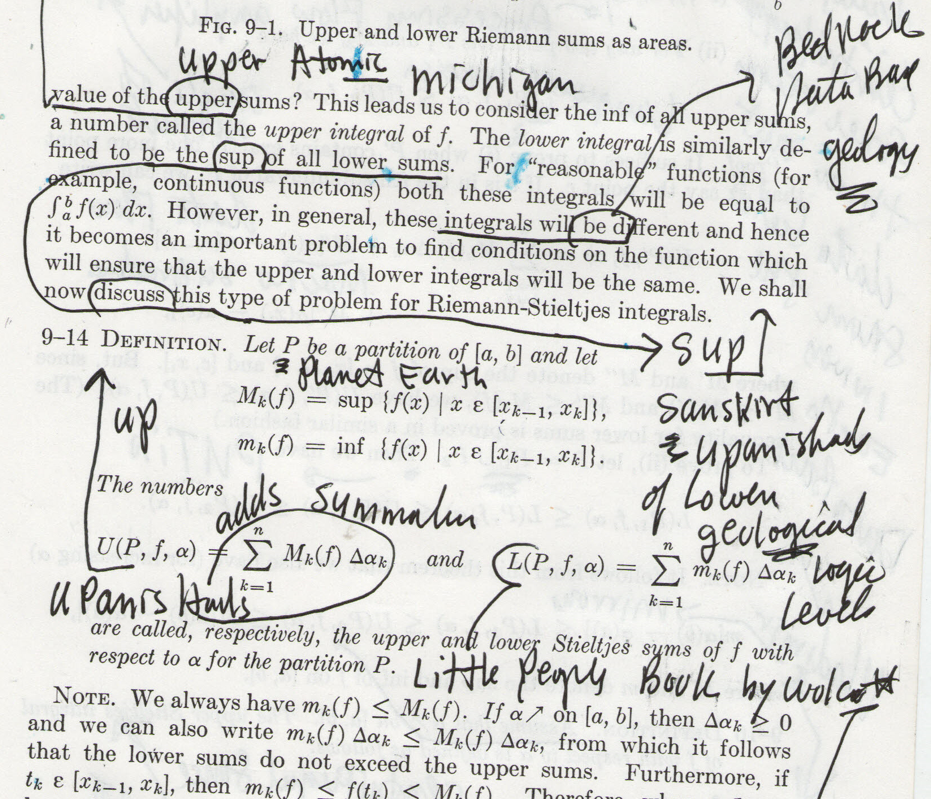 FIG. 9–1. Upper and lower Riemann sums as areas.
b
Upper Atomic
Michigan
Bedrock
Data Base
geology
value of the upper sums? This leads us to consider the inf of all upper sums,
a number called the upper integral of f. The lower integral is similarly de-
fined to be the sup of all lower sums. For “reasonable” functions (for
example, continuous functions) both these integrals will be equal to
∫ₐᵇ f(x) dx. However, in general, these integrals will be different and hence
it becomes an important problem to find conditions on the function which
will ensure that the upper and lower integrals will be the same. We shall
now discuss this type of problem for Riemann-Stieltjes integrals.
9–14 DEFINITION. Let P be a partition of [a, b] and let
Planet Earth
Sup
Mₖ(f) = sup {f(x) | x ε [xₖ₋₁, xₖ]},
mₖ(f) = inf {f(x) | x ε [xₖ₋₁, xₖ]}.
up
Sanskirt
Upanishads
of Lower
geological
logic
Levels
The numbers
adds
U(P, f, α) = ∑ₖ₌₁ⁿ Mₖ(f) Δαₖ and L(P, f, α) = ∑ₖ₌₁ⁿ mₖ(f) Δαₖ
are called, respectively, the upper and lower Stieltjes sums of f with
respect to α for the partition P.
Little People Book by Wolcott
NOTE. We always have mₖ(f) ≤ Mₖ(f). If α↗ on [a, b], then Δαₖ ≥ 0
and we can also write mₖ(f) Δαₖ ≤ Mₖ(f) Δαₖ, from which it follows
that the lower sums do not exceed the upper sums. Furthermore, if
tₖ ε [xₖ₋₁, xₖ], then mₖ(f) ≤ f(tₖ) ≤ Mₖ(f). Therefore